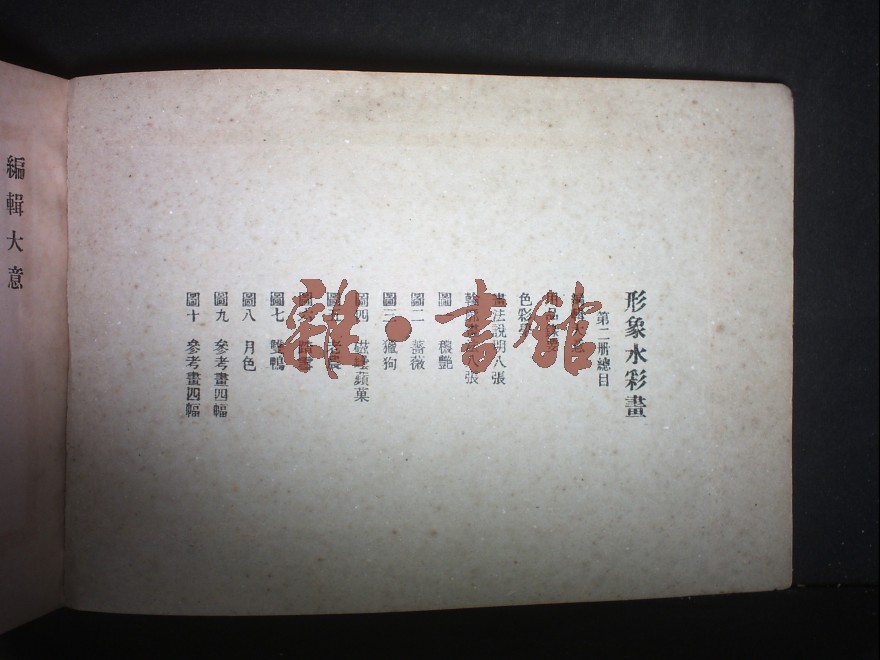 形象水彩畫
第二冊總目
編輯大意
色彩學
畫法說明八張
圖一 穠艷
圖二 薔薇
圖三 獵狗
圖四 磁蘋菓
圖七 雙鴨
圖八 月色
圖九 參考畫四幅
圖十 參考畫四幅
編輯大意
雜·書館